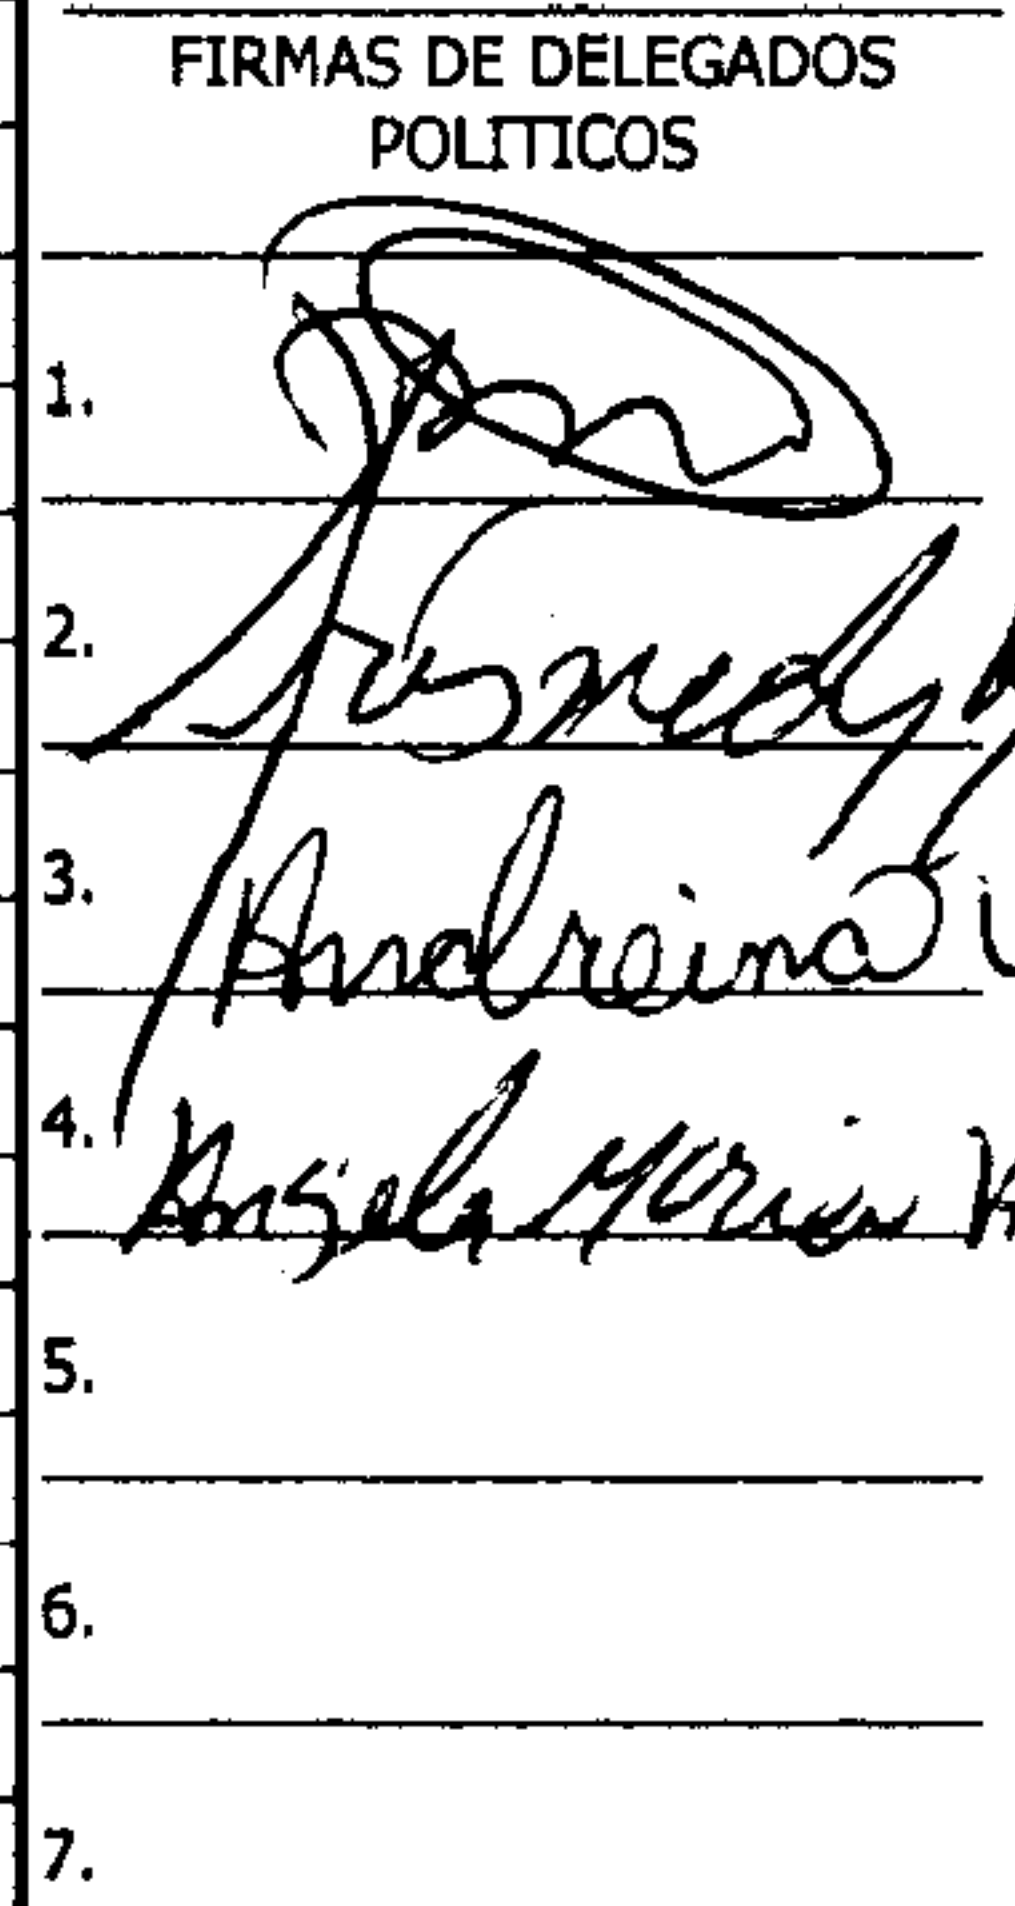 FIRMAS DE DELEGADOS
POLITICOS
1.
2.
3. Andreina
4. Angela Maria
5.
6.
7.